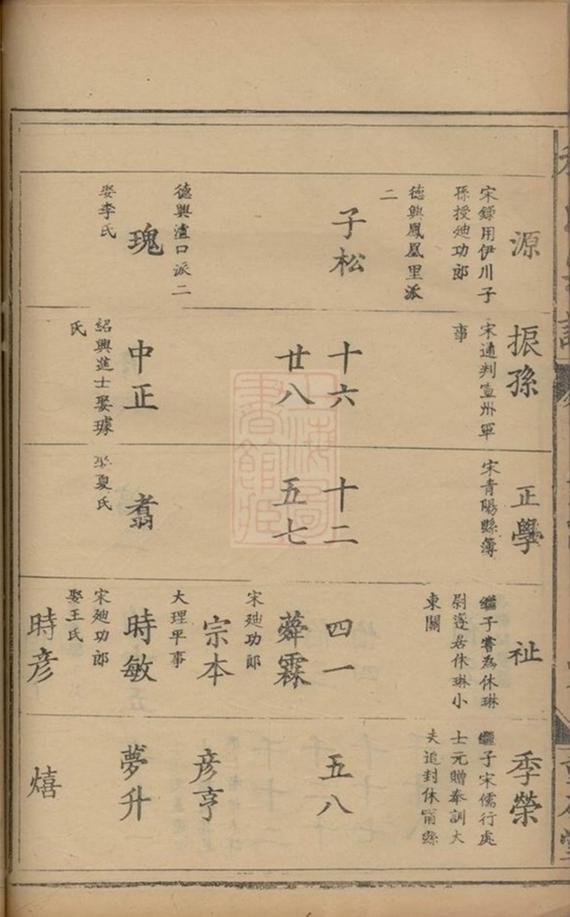 源
宋録用伊川子
孫授廸功郎
德興鳳凰里派
二
子松
德興瀘口派二
瑰
娶李氏
振孫
宋通判宣州軍
事
十六
廿八
中正
紹興進士娶璩
氏
正學
宋青陽縣簿
十二
五七
翥
娶夏氏
祉
繼子嘗為休琳
尉遂居休琳小
東關
四一
蕣霖
宋廸功郎
宗本
大理平事
時敏
宋廸功郎
娶王氏
時彦
季榮
繼子宋儒行處
士元贈奉訓大
夫追封休甯縣
五八
彦亨
夢升
熺